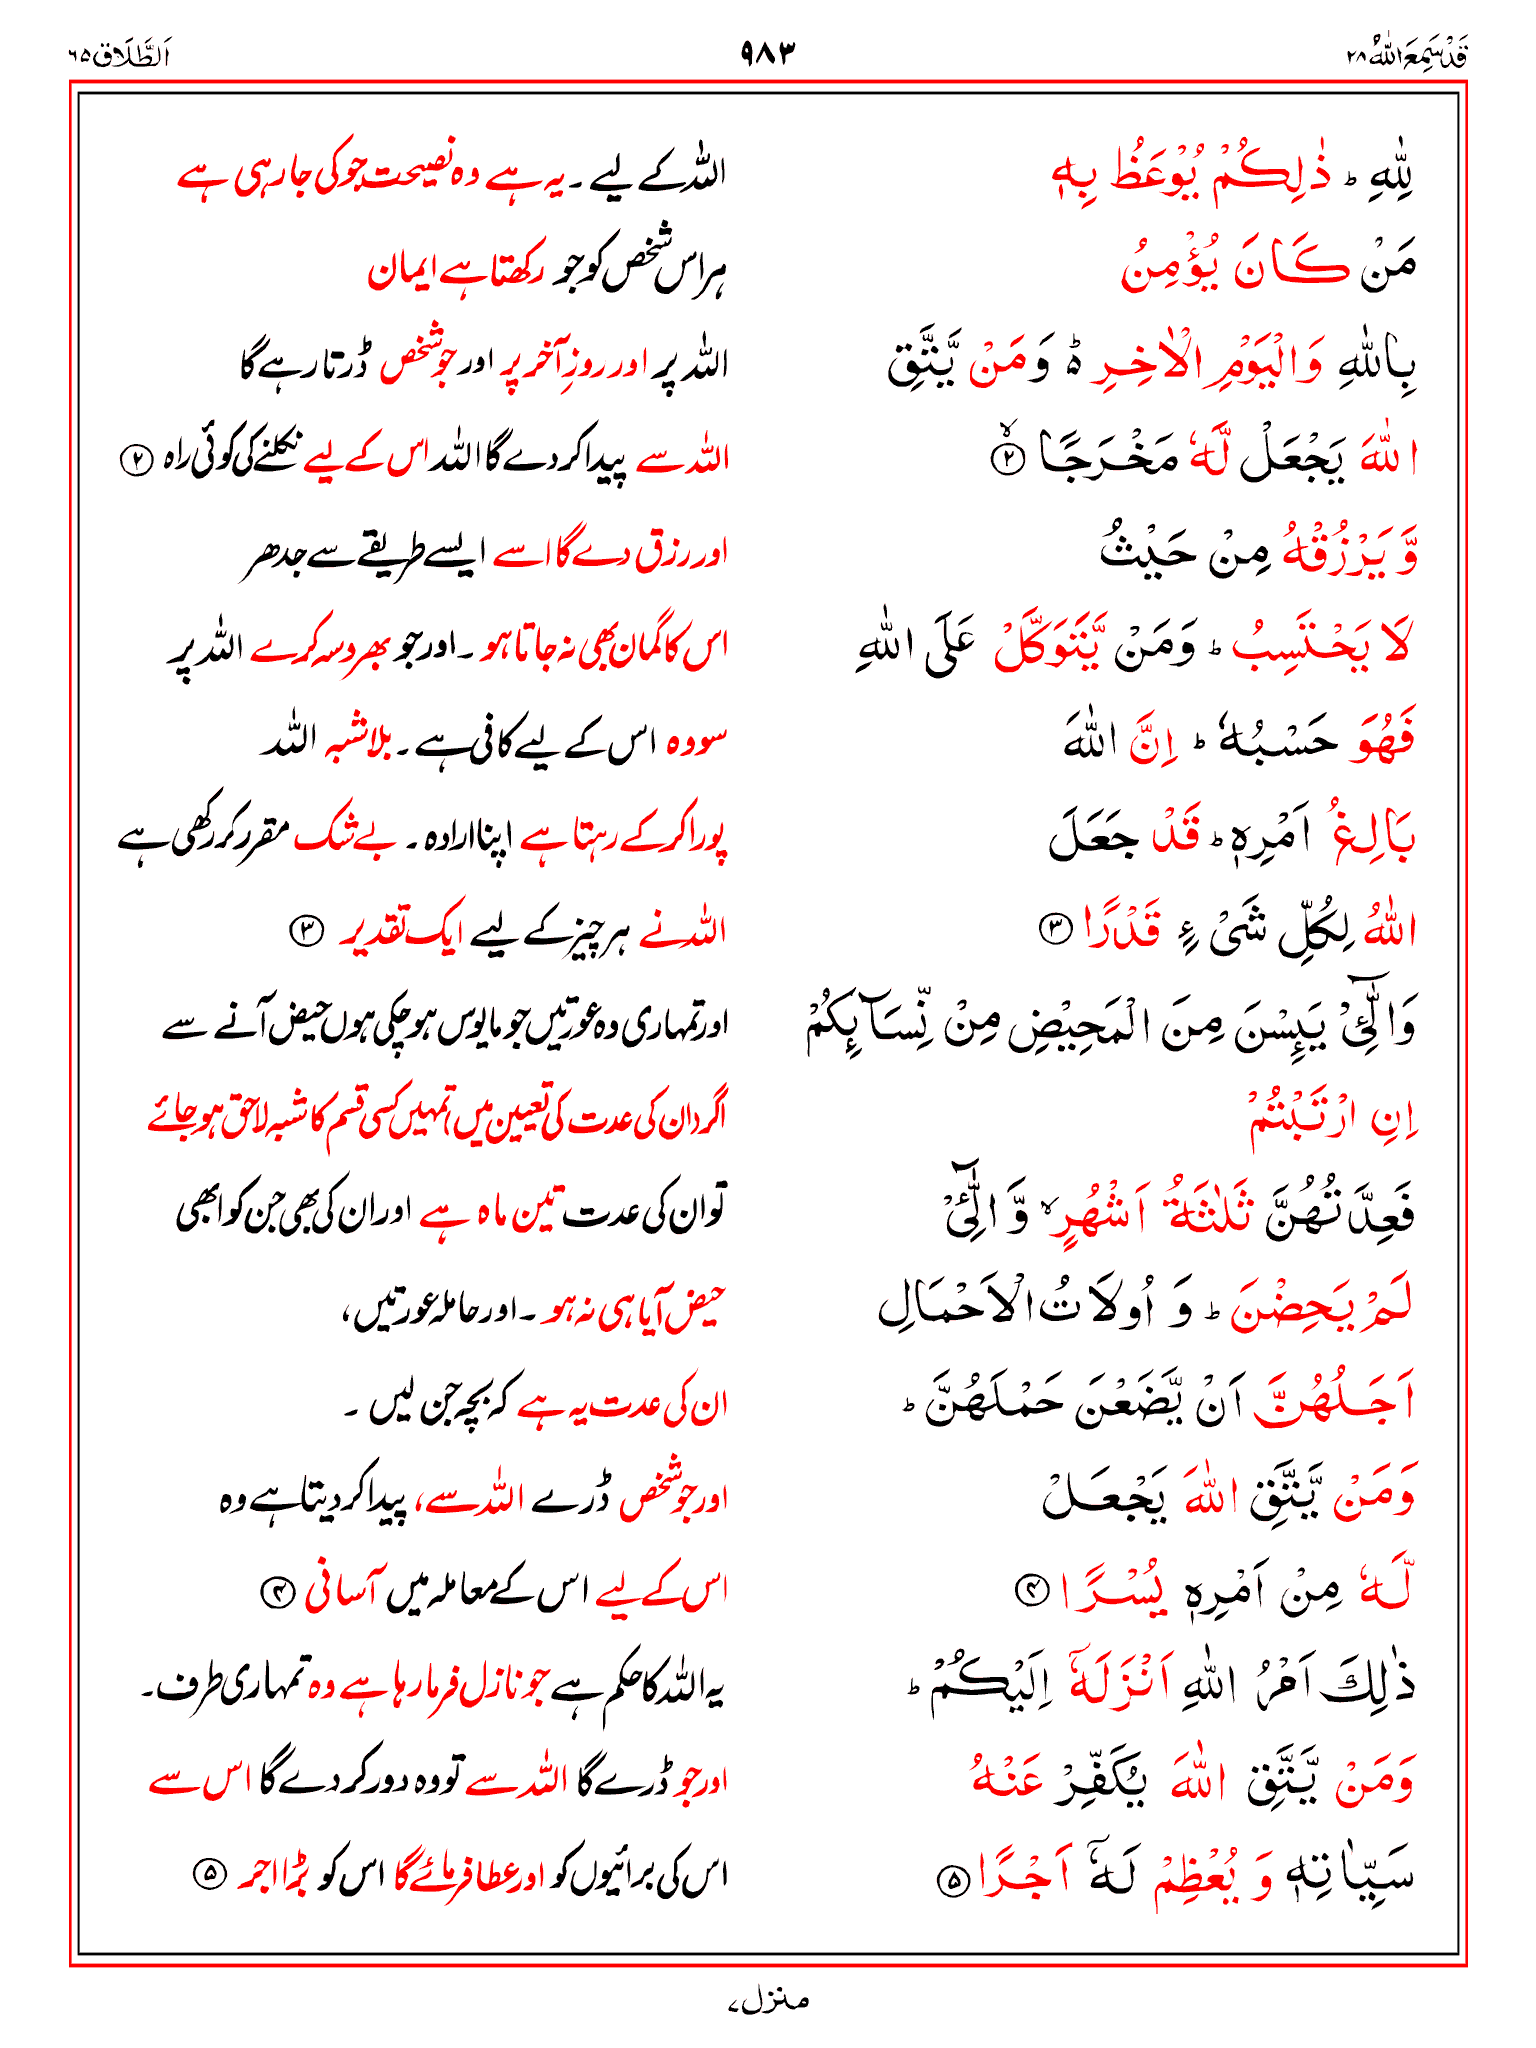 قَدْ سَمِعَ اللّٰهُ ٢٨
٩٨٣
اَلطَّلَاق ٦٥
لِلّٰهِ ؕ ذٰلِكُمْ يُوْعَظُ بِهٖ
اللہ کے لیے ۔ یہ ہے وہ نصیحت جو کی جا رہی ہے
مَنْ كَانَ يُؤْمِنُ
ہر اس شخص کو جو رکھتا ہے ایمان
بِاللّٰهِ وَالْيَوْمِ الْاٰخِرِ ؕ۬ وَمَنْ يَّتَّقِ
اللہ پر اور روزِ آخر پر اور جو شخص ڈرتا رہے گا
اللّٰهَ يَجْعَلْ لَّهٗ مَخْرَجًا ۙ﴿٢﴾
اللہ سے پیدا کر دے گا اللہ اس کے لیے نکلنے کی کوئی راہ ﴿٢﴾
وَّ يَرْزُقْهُ مِنْ حَيْثُ
اور رزق دے گا اسے ایسے طریقے سے جدھر
لَا يَحْتَسِبُ ؕ وَمَنْ يَّتَوَكَّلْ عَلَى اللّٰهِ
اس کا گمان بھی نہ جاتا ہو ۔ اور جو بھروسہ کرے اللہ پر
فَهُوَ حَسْبُهٗ ؕ اِنَّ اللّٰهَ
سو وہ اس کے لیے کافی ہے ۔ بلا شبہ اللہ
بَالِغُ اَمْرِهٖ ؕ قَدْ جَعَلَ
پورا کر کے رہتا ہے اپنا ارادہ ۔ بے شک مقرر کر رکھی ہے
اللّٰهُ لِكُلِّ شَىْءٍ قَدْرًا ﴿٣﴾
اللہ نے ہر چیز کے لیے ایک تقدیر ﴿٣﴾
وَالّٰٓـِٔىْ يَىِٕسْنَ مِنَ الْمَحِيْضِ مِنْ نِّسَآىِٕكُمْ
اور تمہاری وہ عورتیں جو مایوس ہو چکی ہوں حیض آنے سے
اِنِ ارْتَبْتُمْ
اگر (ان کی عدت کی تعیین میں) تمہیں کسی قسم کا شبہ لاحق ہو جائے
فَعِدَّتُهُنَّ ثَلٰثَةُ اَشْهُرٍ ۙ وَّ الّٰٓـِٔىْ
تو ان کی عدت تین ماہ ہے اور ان کی بھی جن کو ابھی
لَمْ يَحِضْنَ ؕ وَ اُولَاتُ الْاَحْمَالِ
حیض آیا ہی نہ ہو ۔ اور حاملہ عورتیں،
اَجَلُهُنَّ اَنْ يَّضَعْنَ حَمْلَهُنَّ ؕ
ان کی عدت یہ ہے کہ بچہ جن لیں ۔
وَمَنْ يَّتَّقِ اللّٰهَ يَجْعَلْ
اور جو شخص ڈرے اللہ سے، پیدا کر دیتا ہے وہ
لَّهٗ مِنْ اَمْرِهٖ يُسْرًا ﴿٤﴾
اس کے لیے اس کے معاملہ میں آسانی ﴿٤﴾
ذٰلِكَ اَمْرُ اللّٰهِ اَنْزَلَهٗۤ اِلَيْكُمْ ؕ
یہ اللہ کا حکم ہے جو نازل فرما رہا ہے وہ تمہاری طرف ۔
وَمَنْ يَّتَّقِ اللّٰهَ يُكَفِّرْ عَنْهُ
اور جو ڈرے گا اللہ سے تو وہ دور کر دے گا اس سے
سَيِّاٰتِهٖ وَ يُعْظِمْ لَهٗۤ اَجْرًا ﴿٥﴾
اس کی برائیوں کو اور عطا فرمائے گا اس کو بڑا اجر ﴿٥﴾
منزل ٧